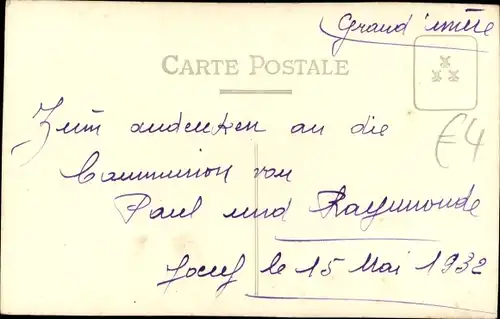 Grand'mère
CARTE POSTALE
Zum andenken an die
€4
Communion von
Paul und Raymonde
Joeuf le 15 Mai 1932